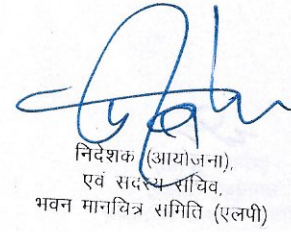 निदेशक (आयोजना),
एवं सदस्य सचिव,
भवन मानचित्र समिति (एलपी)